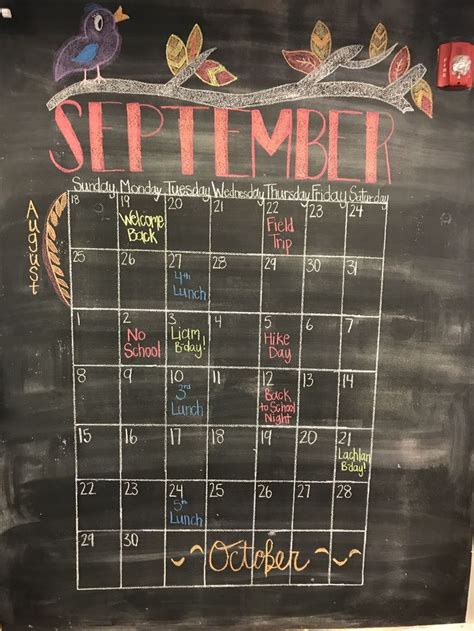 SEPTEMBER
Sunday Monday Tuesday Wednesday Thursday Friday Saturday
August
18 19 20 21 22 23 24
Welcome
Back
Field
Trip
25 26 27 28 29 30 31
4th
Lunch
1 2 3 4 5 6 7
No
School
Liam
B-day!
Hike
Day
8 9 10 11 12 13 14
3rd
Lunch
Back
to School
Night
15 16 17 18 19 20 21
Lachlan
B-day!
22 23 24 25 26 27 28
5th
Lunch
29 30
October
FIRE